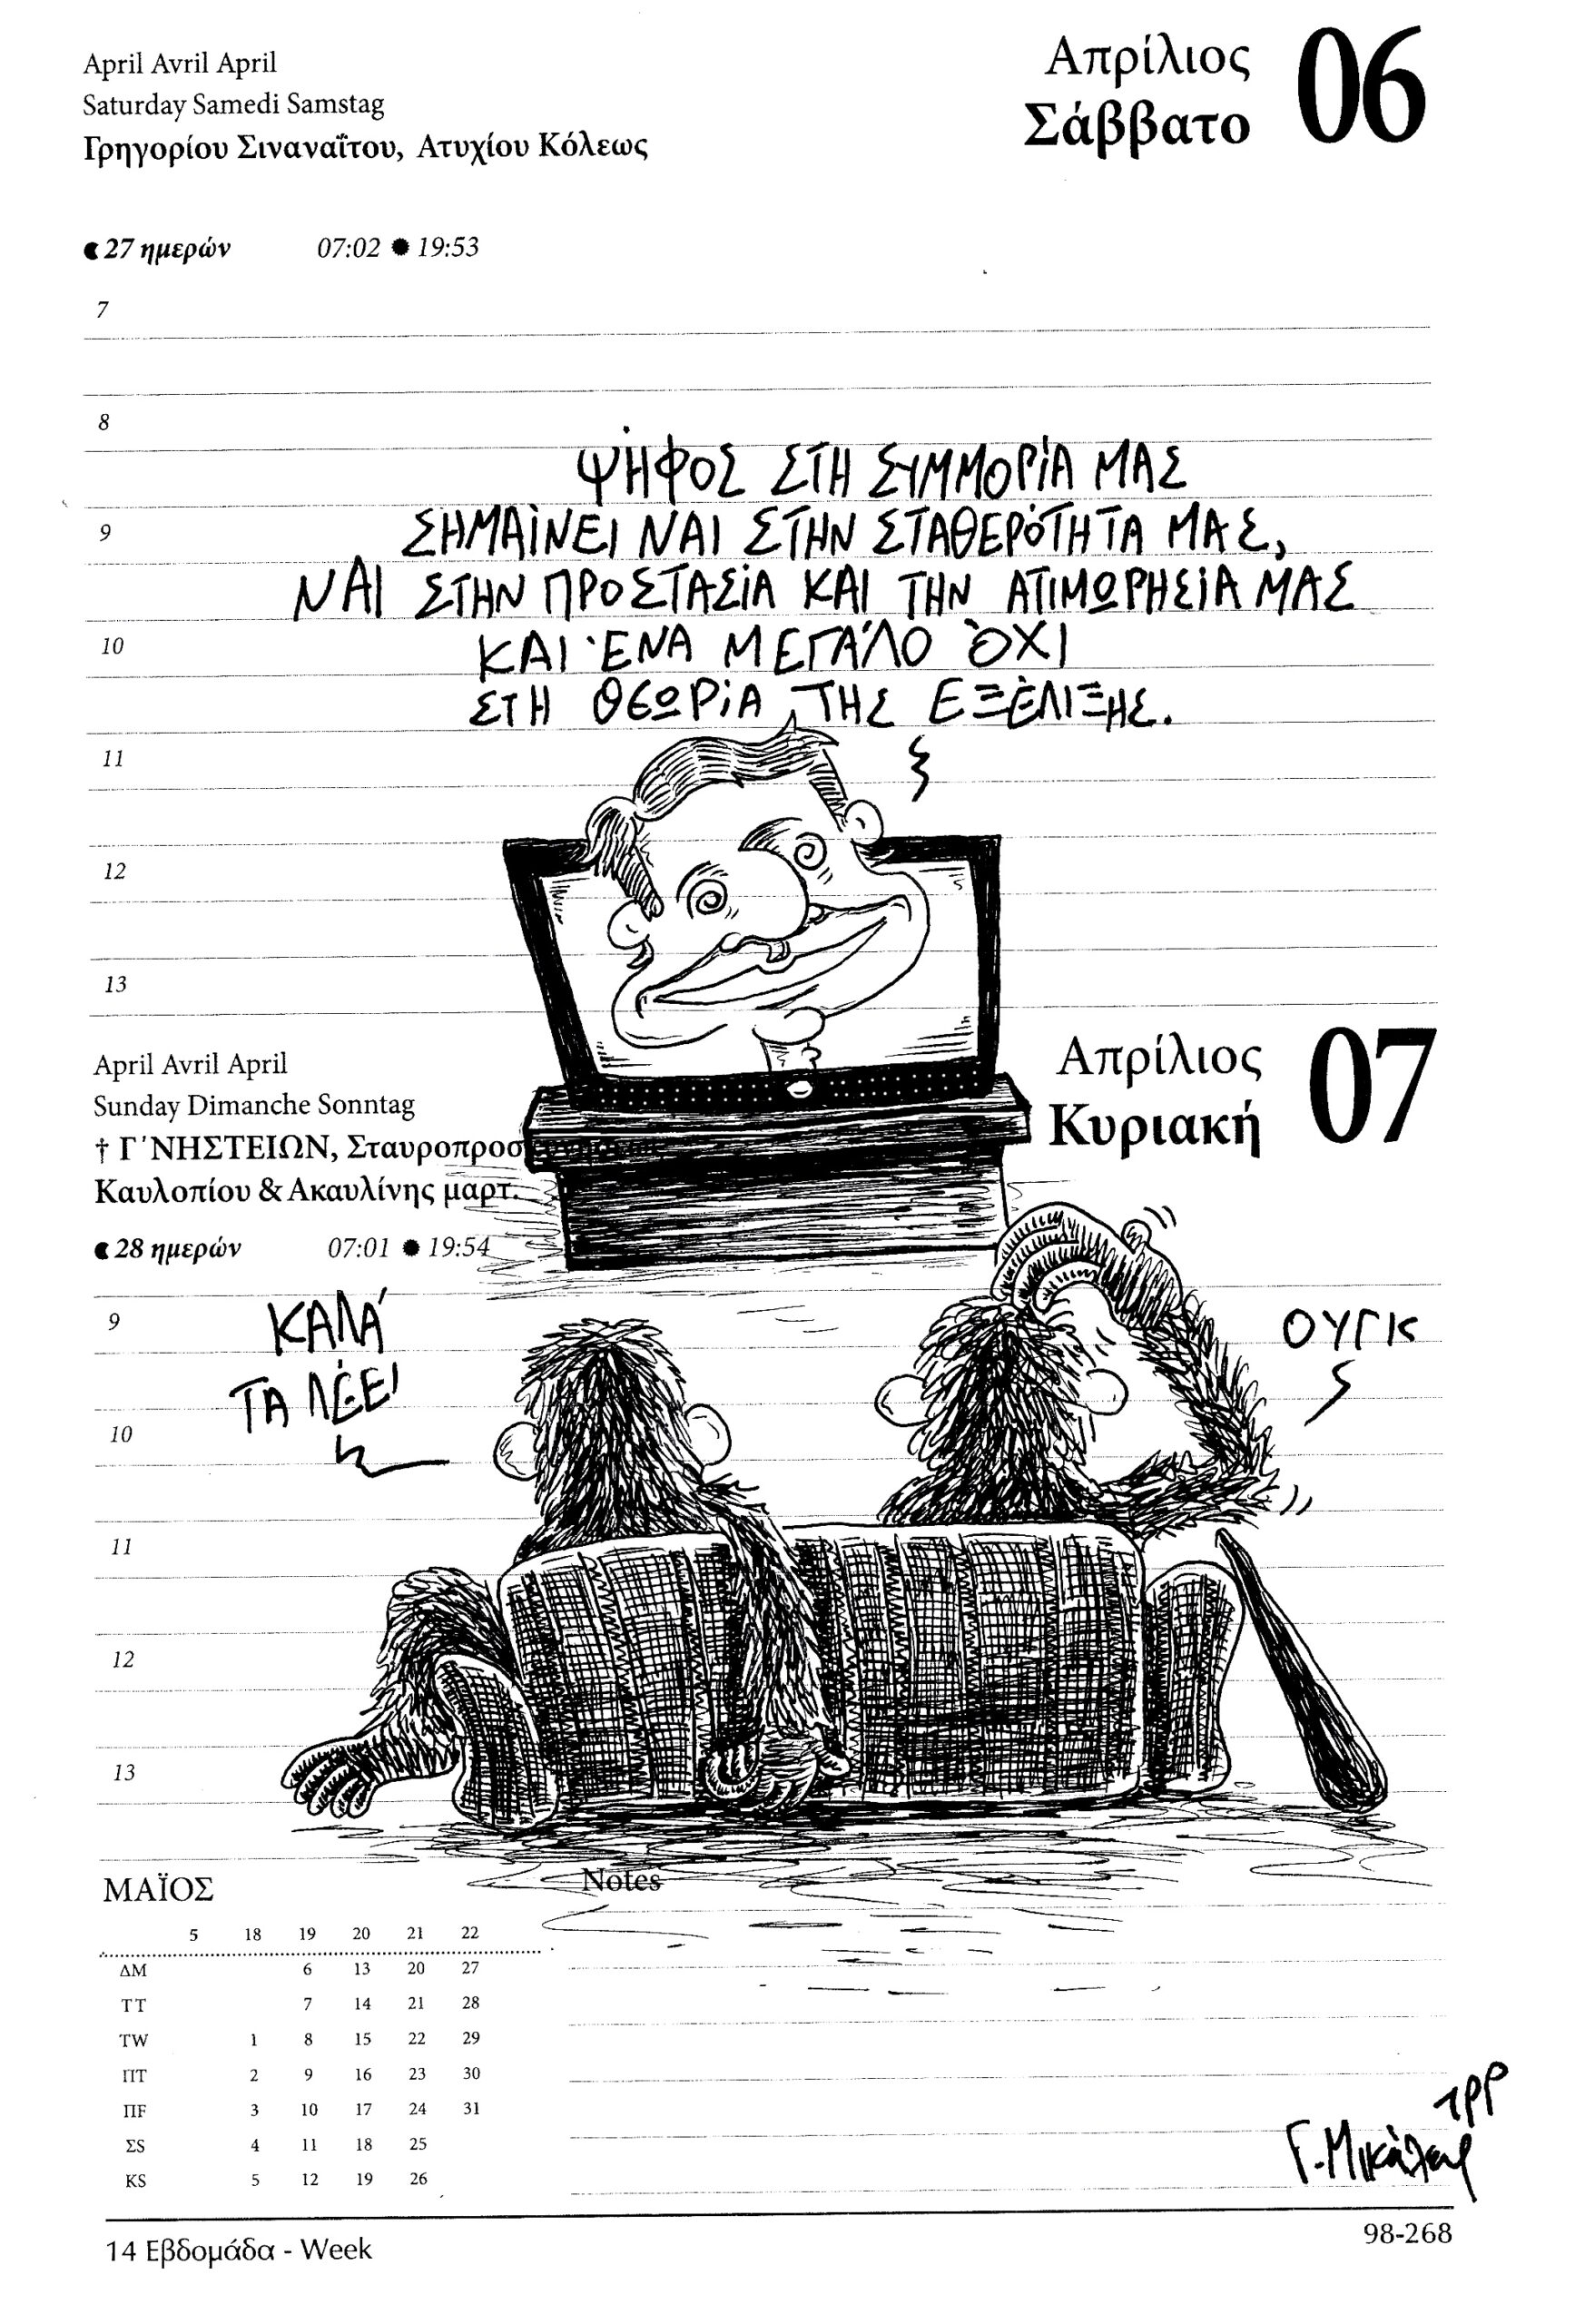 April Avril April
Saturday Samedi Samstag
Γρηγορίου Σιναναΐτου, Ατυχίου Κόλεως
Απρίλιος
Σάββατο
06
27 ημερών 07:02 19:53
7
8
ΨΗΦΟΣ ΣΤΗ ΣΥΜΜΟΡΊΑ ΜΑΣ
9
ΣΗΜΑΊΝΕΙ ΝΑΙ ΣΤΗΝ ΣΤΑΘΕΡΌΤΗΤΑ ΜΑΣ,
ΝΑΙ ΣΤΗΝ ΠΡΟΣΤΑΣΊΑ ΚΑΙ ΤΗΝ ΑΤΙΜΩΡΗΣΊΑ ΜΑΣ
10
ΚΑΙ ΈΝΑ ΜΕΓΆΛΟ ΌΧΙ
ΣΤΗ ΘΕΩΡΊΑ ΤΗΣ ΕΞΈΛΙΞΗΣ.
11
12
13
April Avril April
Sunday Dimanche Sonntag
† Γ΄ΝΗΣΤΕΙΩΝ, Σταυροπροσ
Καυλοπίου & Ακαυλίνης μαρτ.
Απρίλιος
Κυριακή
07
28 ημερών 07:01 19:54
9
ΚΑΛΆ
ΤΑ ΛΈΕΙ
ΟΥΓΚ
10
11
12
13
ΜΑΪΟΣ
Notes
5 18 19 20 21 22
ΔΜ 6 13 20 27
ΤΤ 7 14 21 28
ΤW 1 8 15 22 29
ΠΤ 2 9 16 23 30
ΠF 3 10 17 24 31
ΣS 4 11 18 25
KS 5 12 19 26
14 Εβδομάδα - Week
98-268